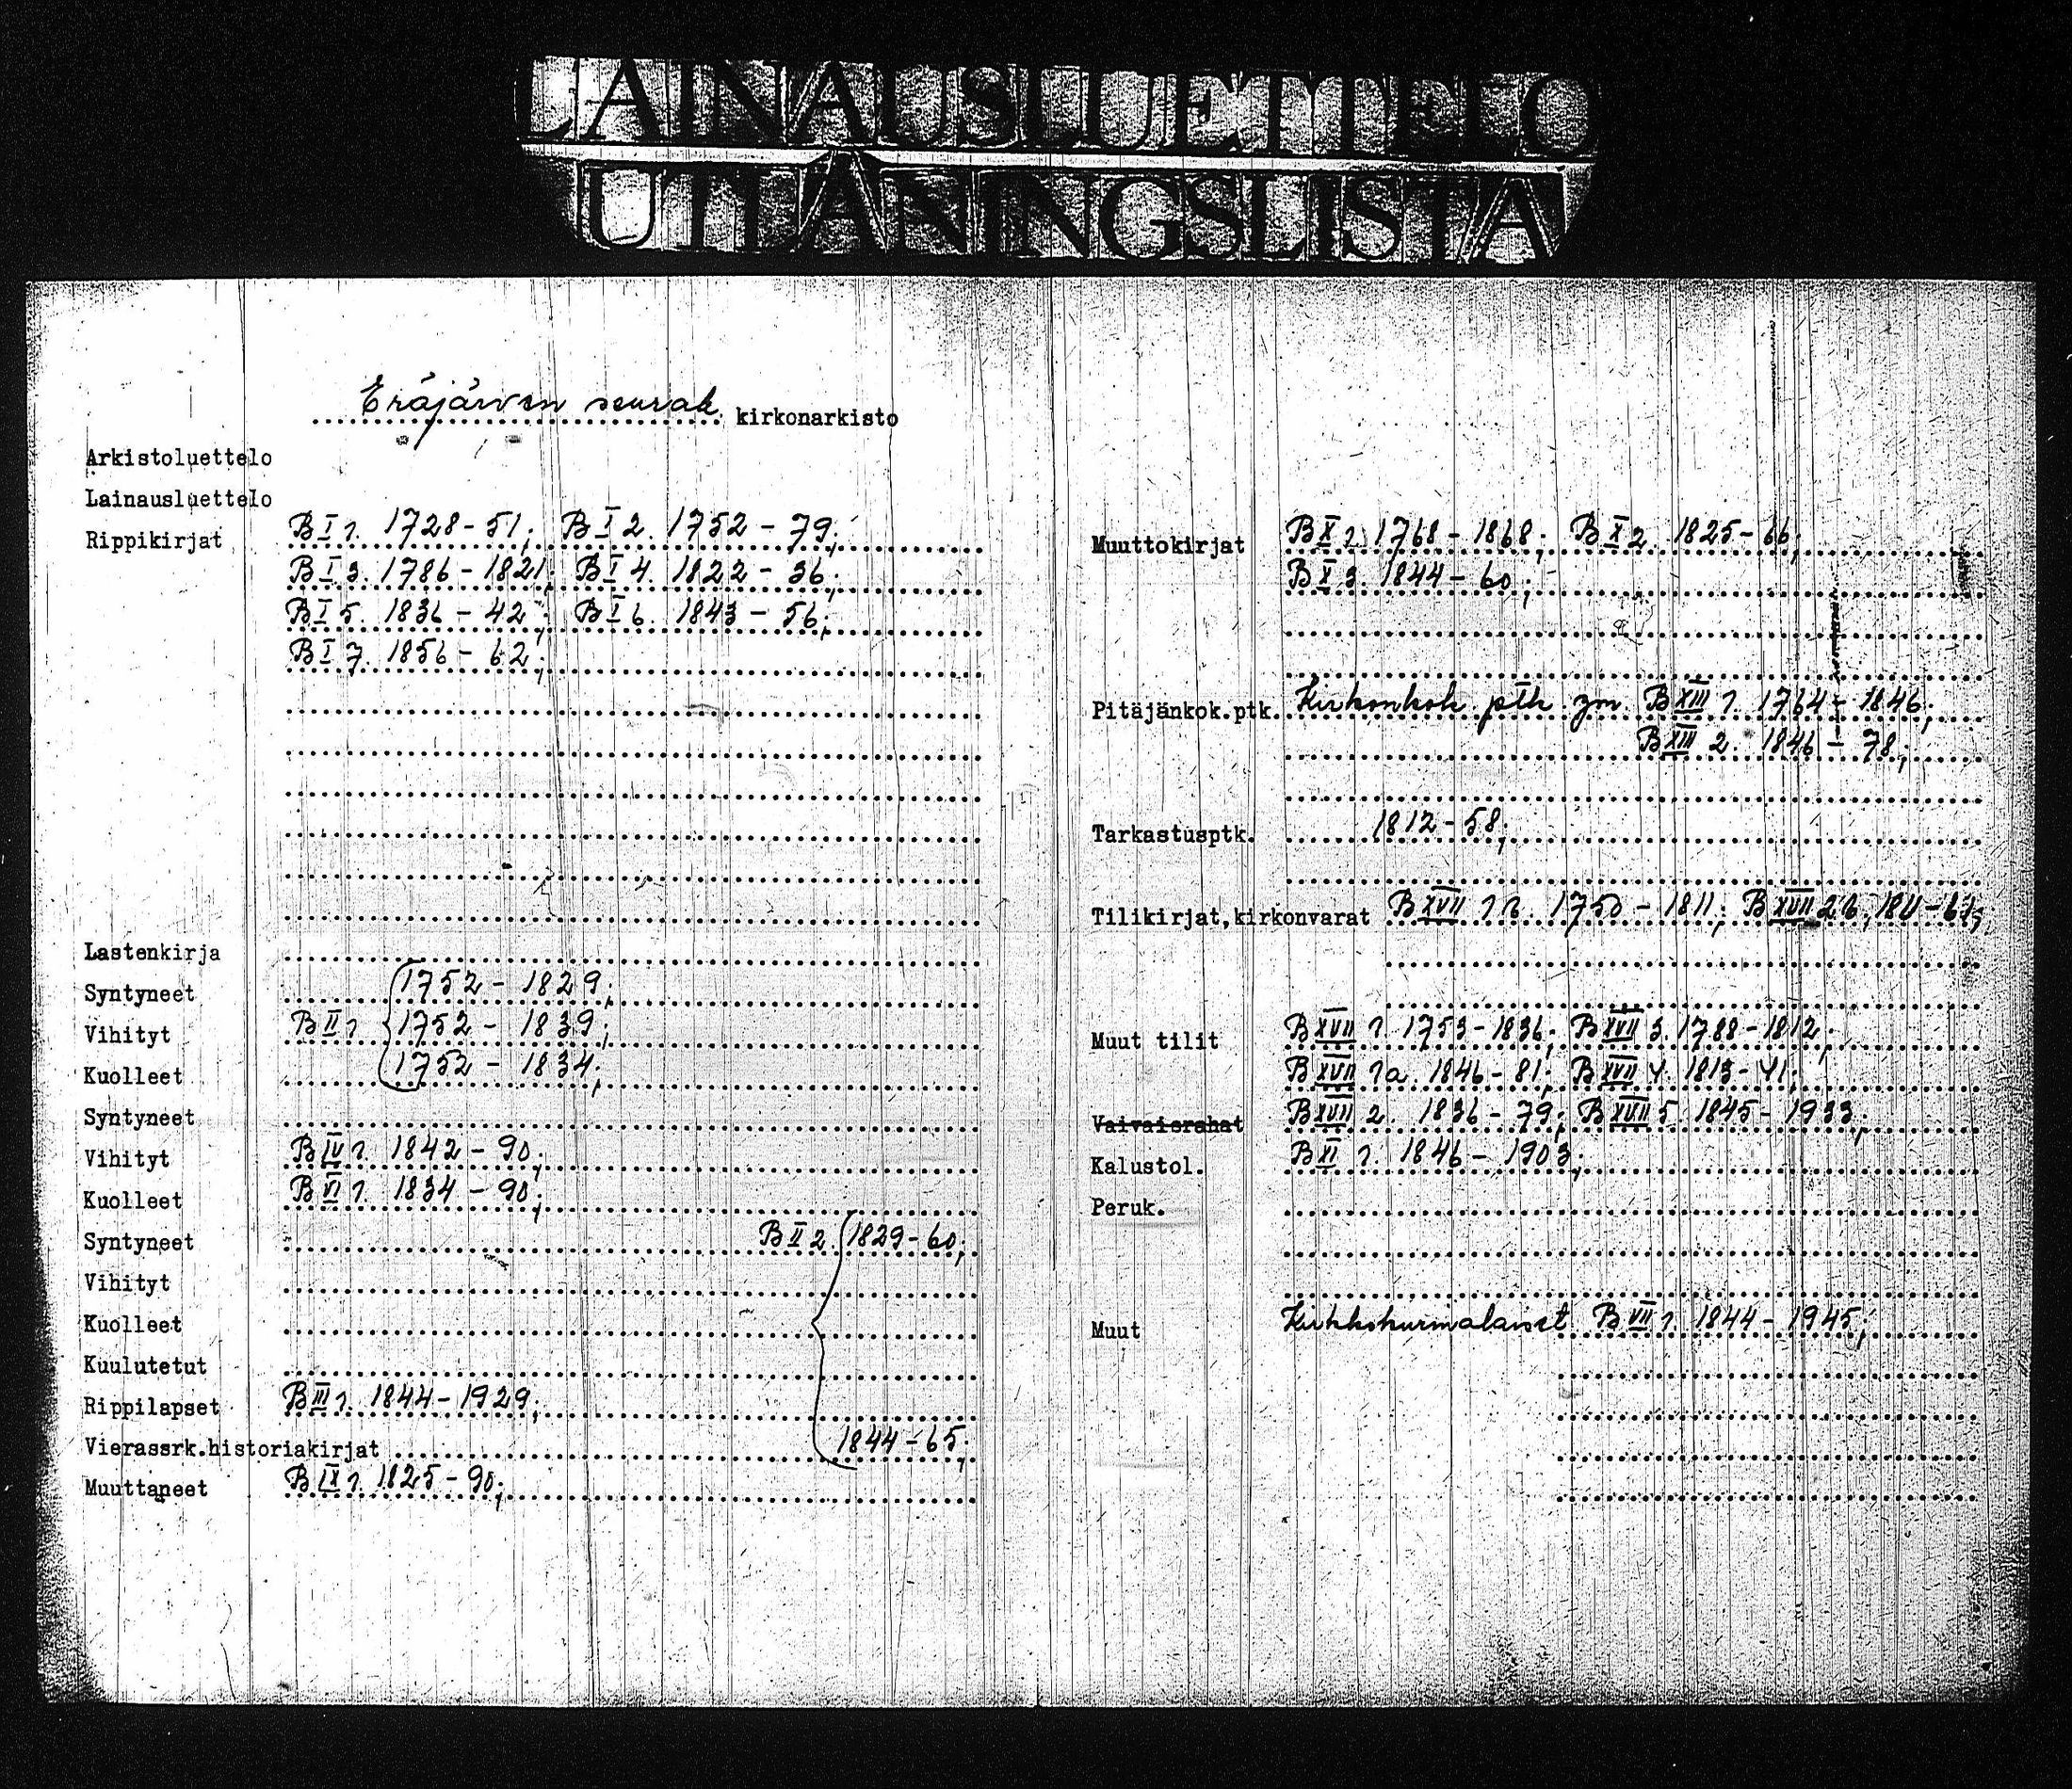 LAINAUSLUETTELO
UTLÅNINGSLISTA
Eräjärven seurak. kirkonarkisto
Arkistoluettelo
Lainausluettelo
Rippikirjat B I 1. 1728-51; B I 2. 1752-79;
B I 3. 1786-1821; B I 4. 1822-36;
B I 5. 1836-42; B I 6. 1843-56;
B I 7. 1856-62;
Lastenkirja
Syntyneet 1752-1829;
Vihityt B II 1 1752-1839;
Kuolleet 1752-1834;
Syntyneet
Vihityt B IV 1. 1842-90;
Kuolleet B VI 1. 1834-90;
Syntyneet B II 2 1829-60;
Vihityt
Kuolleet
Kuulutetut
Rippilapset B III 1. 1844-1929;
Vierassrk.historiakirjat 1844-65;
Muuttaneet B IX 1. 1825-90;
Muuttokirjat B X 1. 1768-1868; B X 2. 1825-66;
B X 3. 1844-60;
Pitäjänkok.ptk. Kirkonkok. ptk. ym. B XIII 1. 1764-1846;
B XIII 2. 1846-78;
Tarkastusptk. 1812-58;
Tilikirjat,kirkonvarat B XVII 1 1750-1811; B XVII
Muut tilit B XVII 1. 1753-1836; B XVII 3. 1788-1812;
B XVII 1a. 1846-81; B XVII 4. 1813-41;
Vaivaisrahat B XVII 2. 1836-79; B XVII 5. 1845-1933;
Kalustol. B XI 1. 1846-1903;
Peruk.
Muut B VII 1. 1844-1945;